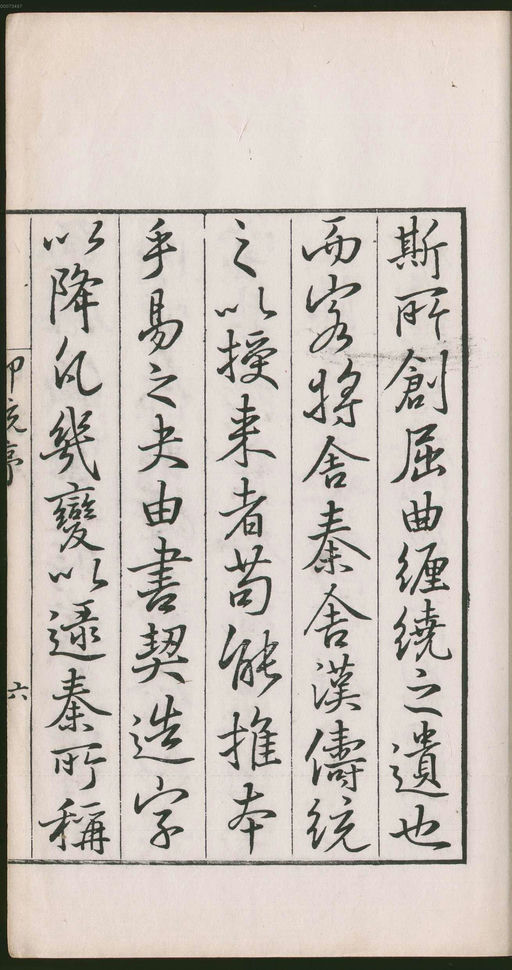 斯所創屈曲纏繞之遺也
而客將舍秦舍漢儔統
之以授来者苟能推本
乎易之夬由書契造字
以降凡幾變以逯秦所稱
印統序
六
00073487